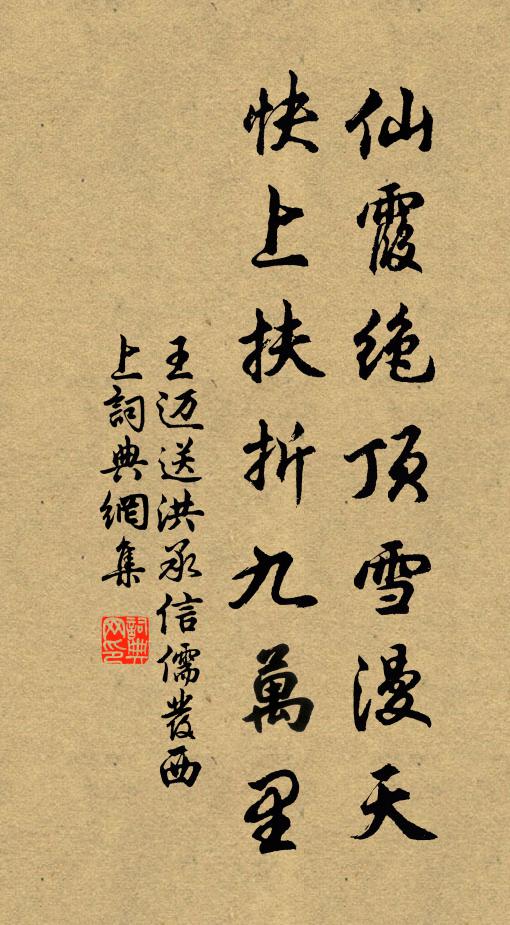 仙霞绝顶雪漫天
快上扶折九萬里
王迈送洪承信儒發西
上詞典網集
詞典网印